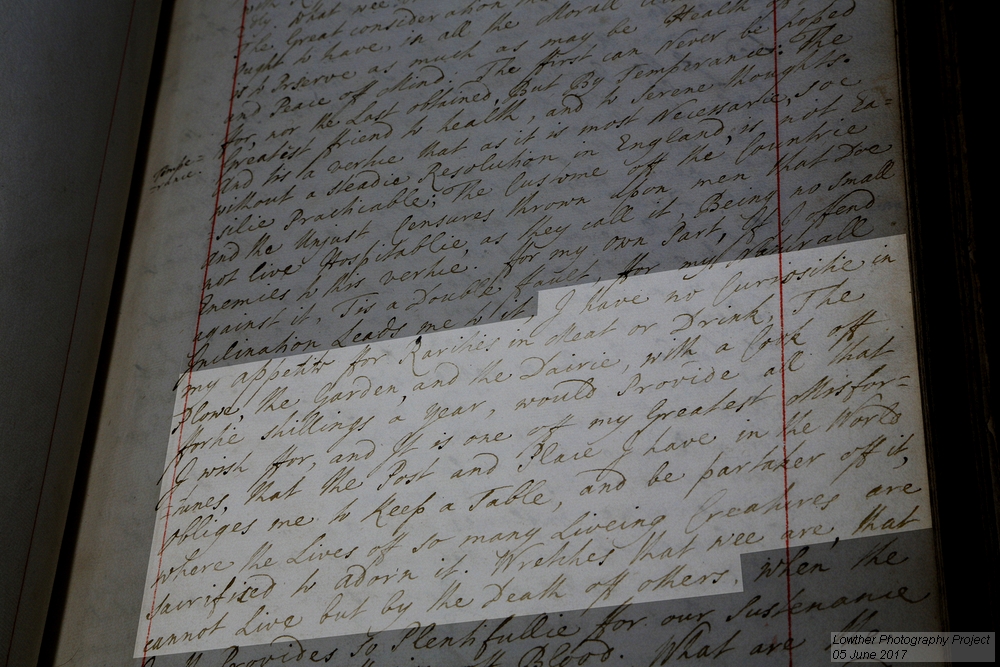 ly, what wee
ble Great consideration
ought to have, in all the Morall
is to Preserve as much as may be Health of
and Peace off Mind. The first can Never be hoped
for, nor the Last obtained, But By Temperance: The
Greatest friend to health, and to Serene thoughts.
And tis a vertue that as it is most Necessarie, soe
without a steadie Resolution in England, is not Ea=
silie Practicable; The Custome off the Countrie
and the Unjust Censures thrown upon men that Doe
not Live Hospitablie, as they call it, Being no small
Enemies to this vertue. For my own Part, If I offend
against it, 'Tis a Double fault, ffor my Naturall
Inclination Leads me n't I have no Curiositie in
my appetite for Rarities in Meat or Drink, The
Plowe, the Garden, and the Dairie, with a Cook off
fortie shillings a year, would Provide all that
I wish ffor, and It is one off my Greatest Misfor=
tunes, that the Post and Place I have in the World
obliges me to keep a Table, and be partaker off it,
where the Lives off so many Liveing Creatures are
sacrifised to adorn it. Wretches that wee are, that
cannot Live but by the Death off others, when the
Provides so Plentifullie for our Sustenance
Blood. What are
Lowther Photography Project
05 June 2017